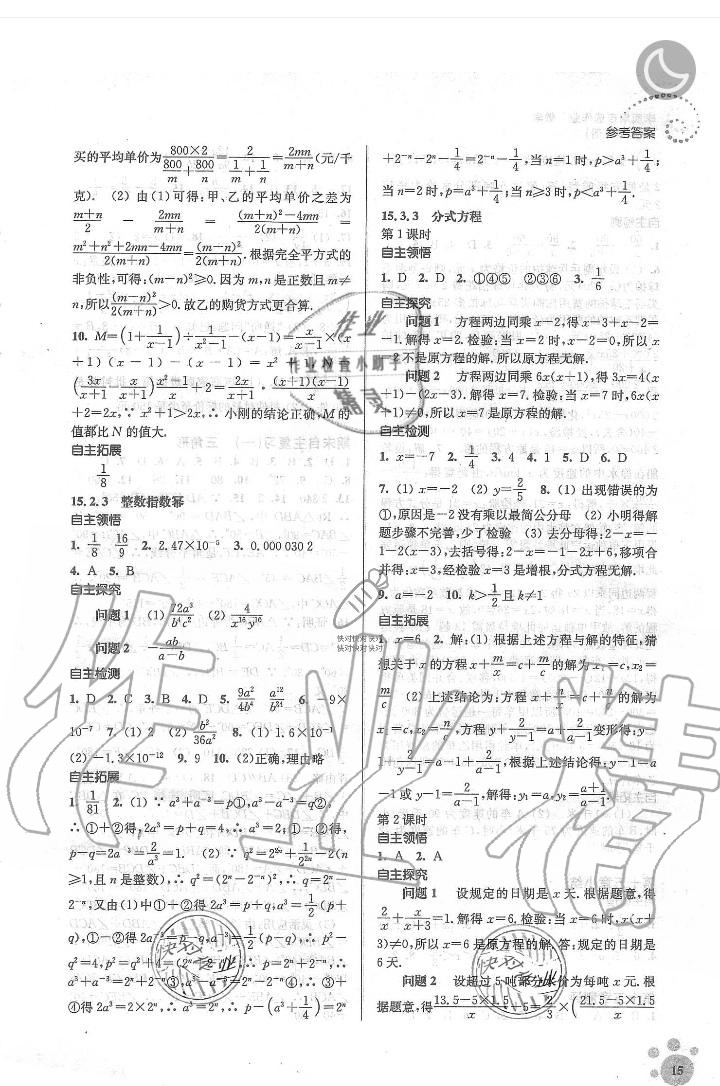 参考答案
买的平均单价为\frac{800×2}{\frac{800}{m}+\frac{800}{n}}=\frac{2}{\frac{1}{m}+\frac{1}{n}}=\frac{2mn}{m+n}(元/千
克). (2) 由(1)可得:甲、乙的平均单价之差为
\frac{m+n}{2}-\frac{2mn}{m+n}=\frac{(m+n)^2-4mn}{2(m+n)}=
\frac{m^2+n^2+2mn-4mn}{2(m+n)}=\frac{(m-n)^2}{2(m+n)}. 根据完全平方式的
非负性,可得:(m-n)^2≥0. 因为 m,n 是正数且 m≠
n,所以\frac{(m-n)^2}{2(m+n)}>0. 故乙的购货方式更合算.
10. M=(1+\frac{1}{x-1})÷\frac{1}{x^2-1}-(x-1)=\frac{x}{x-1}×(x
+1)(x-1)-(x-1)=x^2+1
(\frac{3x}{x+1}-\frac{x}{x+1})·\frac{(x+1)(x-1)}{x}
+2=2x,∵ x^2+1>2x,∴ 小刚的结论正确,M 的
值都比 N 的值大.
自主拓展
\frac{1}{8}
15.2.3 整数指数幂
自主领悟
1. \frac{1}{8} \frac{16}{9} 2. 2.47×10^{-5} 3. 0.000 030 2
4. A 5. B
自主探究
问题 1 (1) \frac{72a^3}{b^4c^2} (2) \frac{4}{x^{16}y^{16}}
问题 2 -\frac{ab}{a-b}
自主检测
1. D 2. C 3. B 4. D 5. \frac{9a^2}{4b^4} \frac{a^{12}}{b^{21}} 6. -9×
10^{-7} 7. (1) 2 (2) \frac{b^2}{36a^2} 8. (1) 1.6×10^{-1}
(2) -1.3×10^{-12} 9. 9 10. (2)正确,理由略
自主拓展
1. \frac{1}{81} 2. (1) ∵ a^3+a^{-3}=p①,a^3-a^{-3}=q②,
∴ ①+②得,2a^3=p+q=4,∴ a^3=2;①-②得,
p-q=2a^{-3}=\frac{2}{a^3}=1. (2) ∵ q^2=2^{2n}+\frac{1}{2^{2n}}-2(n
≥1,且 n 是整数),∴ q^2=(2^n-2^{-n})^2,∴ q=2^n-
2^{-n},又由(1)中①+②得 2a^3=p+q,a^3=\frac{1}{2}(p+
q),①-②得 2a^{-3}=p-q,a^{-3}=\frac{1}{2}(p-q),∴ p^2-
q^2=4,p^2=q^2+4=(2^n+2^{-n})^2,∴ p=2^n+2^{-n},∴
a^3+a^{-3}=2^n+2^{-n}③,a^3-a^{-3}=2^n-2^{-n}④,∴ ③+
④得 2a^3=2×2^n,∴ a^3=2^n,∴ p-(a^3+\frac{1}{4})=2^n
+2^{-n}-2^n-\frac{1}{4}=2^{-n}-\frac{1}{4},当 n=1 时,p>a^3+\frac{1}{4};
当 n=2 时,p=a^3+\frac{1}{4};当 n≥3 时,p<a^3+\frac{1}{4}.
15.3.3 分式方程
第 1 课时
自主领悟
1. D 2. D 2. ①④⑤ ②③⑥ 3. \frac{1}{6}
自主探究
问题 1 方程两边同乘 x-2,得 x-3+x-2=
-1. 解得 x=2. 检验:当 x=2 时,x-2=0,所以 x
=2 不是原方程的解. 所以原方程无解.
问题 2 方程两边同乘 6x(x+1),得 3=4(x
+1)-(2x-3). 解得 x=7. 检验:当 x=7 时,6x(x
+1)≠0,所以 x=7 是原方程的解.
自主检测
1. x=-7 2. \frac{1}{4} 3. 4 4. 1 5. D 6. D
7. (1) x=2 (2) y=\frac{2}{5} 8. (1) 出现错误的为
①,原因是-2 没有乘以最简公分母 (2) 小明得解
题步骤不完善,少了检验 (3) 去分母得:2-x=-
1-2(x-3),去括号得:2-x=-1-2x+6,移项合
并得:x=3,经检验 x=3 是增根,分式方程无解.
9. a=-2 10. k>\frac{1}{2}且 k≠1
自主拓展
1. x=6 2. 解:(1) 根据上述方程与解的特征,猜
想关于 x 的方程 x+\frac{m}{x}=c+\frac{m}{c}的解为 x_1=c,x_2=
\frac{m}{c} (2) 上述结论为:方程 x+\frac{n}{x}=c+\frac{n}{c}的解为
x_1=c,x_2=\frac{n}{c},方程 y+\frac{2}{y-1}=a+\frac{2}{a-1}变形得:y-
1+\frac{2}{y-1}=a-1+\frac{2}{a-1},根据题意得:y-1=a
-1 或 y-1=\frac{2}{a-1},解得:y_1=a,y_2=\frac{a+1}{a-1}.
第 2 课时
自主领悟
1. A 2. A
自主探究
问题 1 设规定的日期是 x 天. 根据题意,得
\frac{2}{x}+\frac{x}{x+3}=1. 解得 x=6. 检验:当 x=6 时,x(x+
3)≠0,所以 x=6 是原方程的解. 答:规定的日期是
6 天.
问题 2 设超过 5 吨部分水价为每吨 x 元. 根
据题意,得\frac{13.5-5×1.5}{x}=\frac{2}{3}×(\frac{21.5-5×1.5}{x}
15
作业
作业检查小助手
精灵
快对快对快对
快对快对快对
作业精
快对作业
快对作业